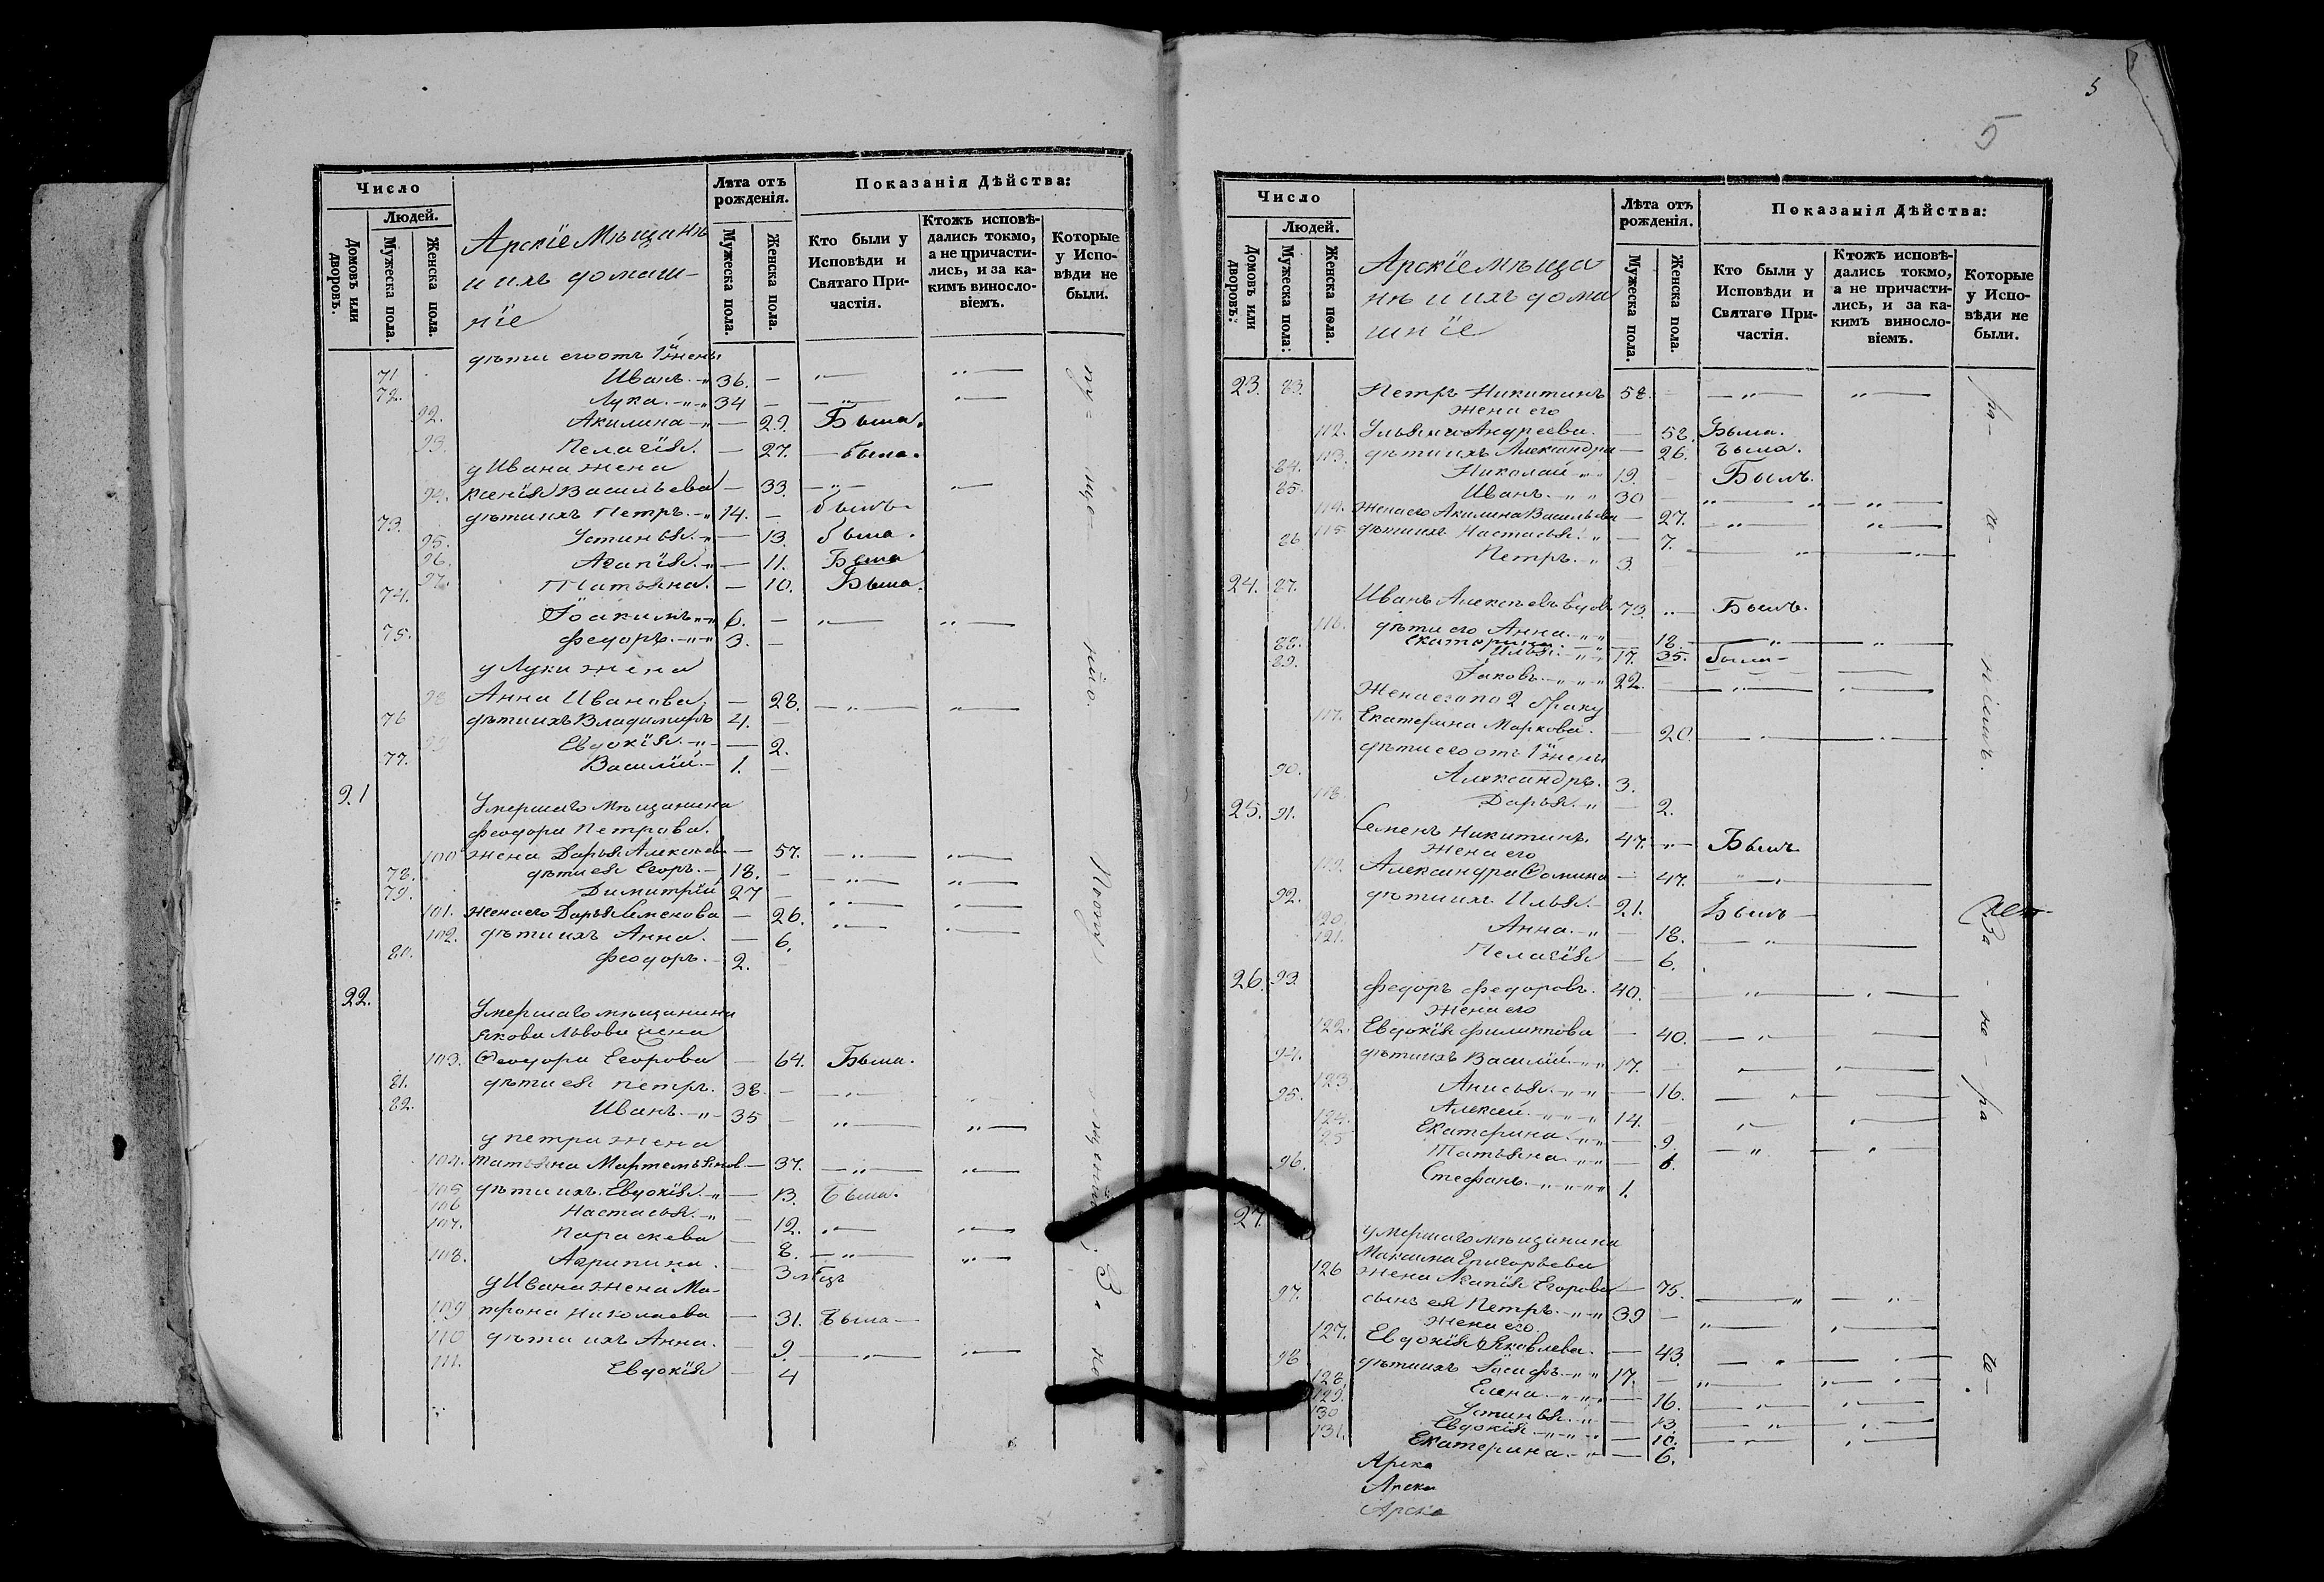 Число
Людей.
Домовъ или дворовъ.
Мужеска пола.
Женска пола.
Арскіе Мѣщанѣ
и ихъ домаш-
ніе
Лѣта отъ рожденія.
Мужеска пола.
Женска пола.
Показанія Дѣйства:
Кто были у Исповѣди и Святаго При-частія.
Ктожъ исповѣ-дались токмо, а не причасти-лись, и за ка-кимъ виносло-віемъ.
Которые у Испо-вѣди не были.
дѣти его отъ 1й жены
71 Иванъ. 36. —
72. Лука. 34 —
92. Акилина — 29. Была.
93. Пелагія. — 27. была.
у Ивана жена
94. Ксенія Васильева — 33.
73. дѣти ихъ Петръ. 14. — былъ
95. Устинья. — 13. была.
96. Агапія. — 11. Была
97. Татьяна. — 10. Была.
74. Іоакимъ 6. —
75. Федоръ. 3. —
у Луки жена
98 Анна Иванова. — 28.
76 дѣти ихъ Владимиръ 4. —
99 Евдокія. — 2.
77. Василій. 1. —
21
Умершаго мѣщанина
Феодора Петрова.
100 жена Дарья Алексѣев — 57.
78. дѣти ея Егоръ. 18. —
79. Димитрій 27 —
101. жена его Дарья Семенова — 26.
102. дѣти ихъ Анна. — 6.
80. Феодоръ. 2. —
22.
Умершаго мѣщанина
Якова Львова жена
103. Феодора Егорова — 64. Была.
81. дѣти ея Петръ. 38. —
82. Иванъ. 35 —
у Петра жена
104. Татьяна Мартемьянов — 37.
105 дѣти ихъ. Евдокія. — 13. Была.
106 Настасья. — 12.
107. Параскева — 8.
108. Агрипина. — 3 мѣц
у Ивана жена Ма-
109 трона Николаева — 31. Была
110 дѣти ихъ Анна. — 9.
111. Евдокія — 4
5
5
Число
Людей.
Домовъ или дворовъ.
Мужеска пола.
Женска пола.
Арскіе мѣща
нѣ и ихъ дома
шніе
Лѣта отъ рожденія.
Мужеска пола.
Женска пола.
Показанія Дѣйства:
Кто были у Исповѣди и Святаго При-частія.
Ктожъ исповѣ-дались токмо, а не причасти-лись, и за ка-кимъ виносло-віемъ.
Которые у Испо-вѣди не были.
23. 83. Петръ Никитинъ 58.
жена его
112. Ульяна Андреева. — 58. Была.
113. дѣти ихъ Александра — 26. была.
84. Николай 19. Былъ.
85. Иванъ. 30
114. жена его Акилина Васильева — 27.
115. дѣти ихъ Настасья. — 7.
86 Петръ. 3.
24. 87. Иванъ Алексѣевъ вдов 73. Былъ.
116. дѣти его Анна. — 18.
Екатерина. — 35. была
88. Илья. 17.
89. Іаковъ. 22.
Жена его по 2 браку
117. Екатерина Маркова. — 20.
дѣти его отъ 1й жены
90. Александръ. 3.
118. Дарья. — 2.
25. 91. Семенъ Никитинъ. 47. Былъ
жена его
119. Александра Фомина — 47.
92. дѣти ихъ Илья. 21. Былъ
120. Анна. — 18.
121. Пелагія — 6.
26. 93. Федоръ Федоровъ. 40.
жена его
122. Евдокія Филиппова — 40.
94. дѣти ихъ Василій. 17.
123. Анисья. — 16.
95. Алексѣй. 14.
124. Екатерина. — 9.
125 Татьяна. — 6.
96. Стефанъ. 1.
27.
умершаго мѣщанина
Максима Григорьева
126 жена Агапія Егорова — 75.
97. сынъ ея Петръ. 39 —
жена его.
127. Евдокія Яковлева. — 43.
98 дѣти ихъ Іосифъ. 17. —
128. Елена. — 16.
129. Устинья. — 13.
130 Евдокія — 10.
131. Екатерина. — 6.
Арска
Арска
Арска